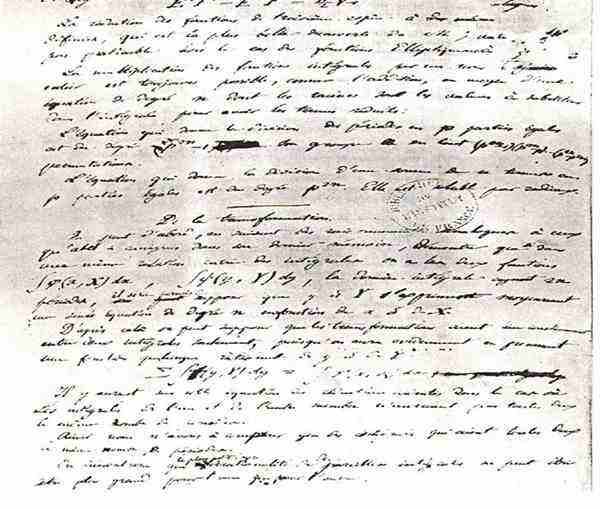 La réduction des fonctions de troisième espèce à des sommes
définies, qui est la plus belle découverte de M. Jacobi, n'est
pas praticable hors le cas des fonctions elliptiques.
La multiplication des fonctions intégrales par un nombre
entier est toujours possible, comme l'addition, au moyen d'une
équation de degré n dont les racines sont les valeurs à substituer
dans l'intégrale pour avoir les termes réduits.
L'équation qui donne la division des périodes en p parties égales
est du degré p²ⁿ - 1. Son groupe a en tout
permutations.
L'équation qui donne la division d'une somme de n termes en
p parties égales est du degré p²ⁿ. Elle est soluble par radicaux.
De la transformation.
On peut d'abord, en suivant des raisonnements analogues à ceux
qu'Abel a consignés dans son dernier mémoire, démontrer que si dans
une même relation entre des intégrales on a les deux fonctions
∫φ(x, X) dx, ∫ψ(y, Y) dy, la dernière intégrale ayant 2n
périodes, il sera permis de supposer que y et Y s'expriment moyennant
une seule équation de degré n en fonction de x et de X.
D'après cela on peut supposer que les transformations aient lieu constamment
entre deux intégrales seulement, puisqu'on aura évidemment en prenant
une fonction quelconque rationnelle de y et de Y
Σ∫f(y, Y) dy = ∫F(x, X) dx +
Il y aurait sur cette équation des réductions évidentes dans le cas où
les intégrales de l'un et de l'autre membre n'auraient pas toutes deux
le même nombre de périodes.
Ainsi nous n'avons à comparer que des intégrales qui aient toutes deux
le même nombre de périodes.
On démontrera que le plus petit degré d'irrationnalité de deux pareilles intégrales ne peut être
plus grand pour l'une que pour l'autre.